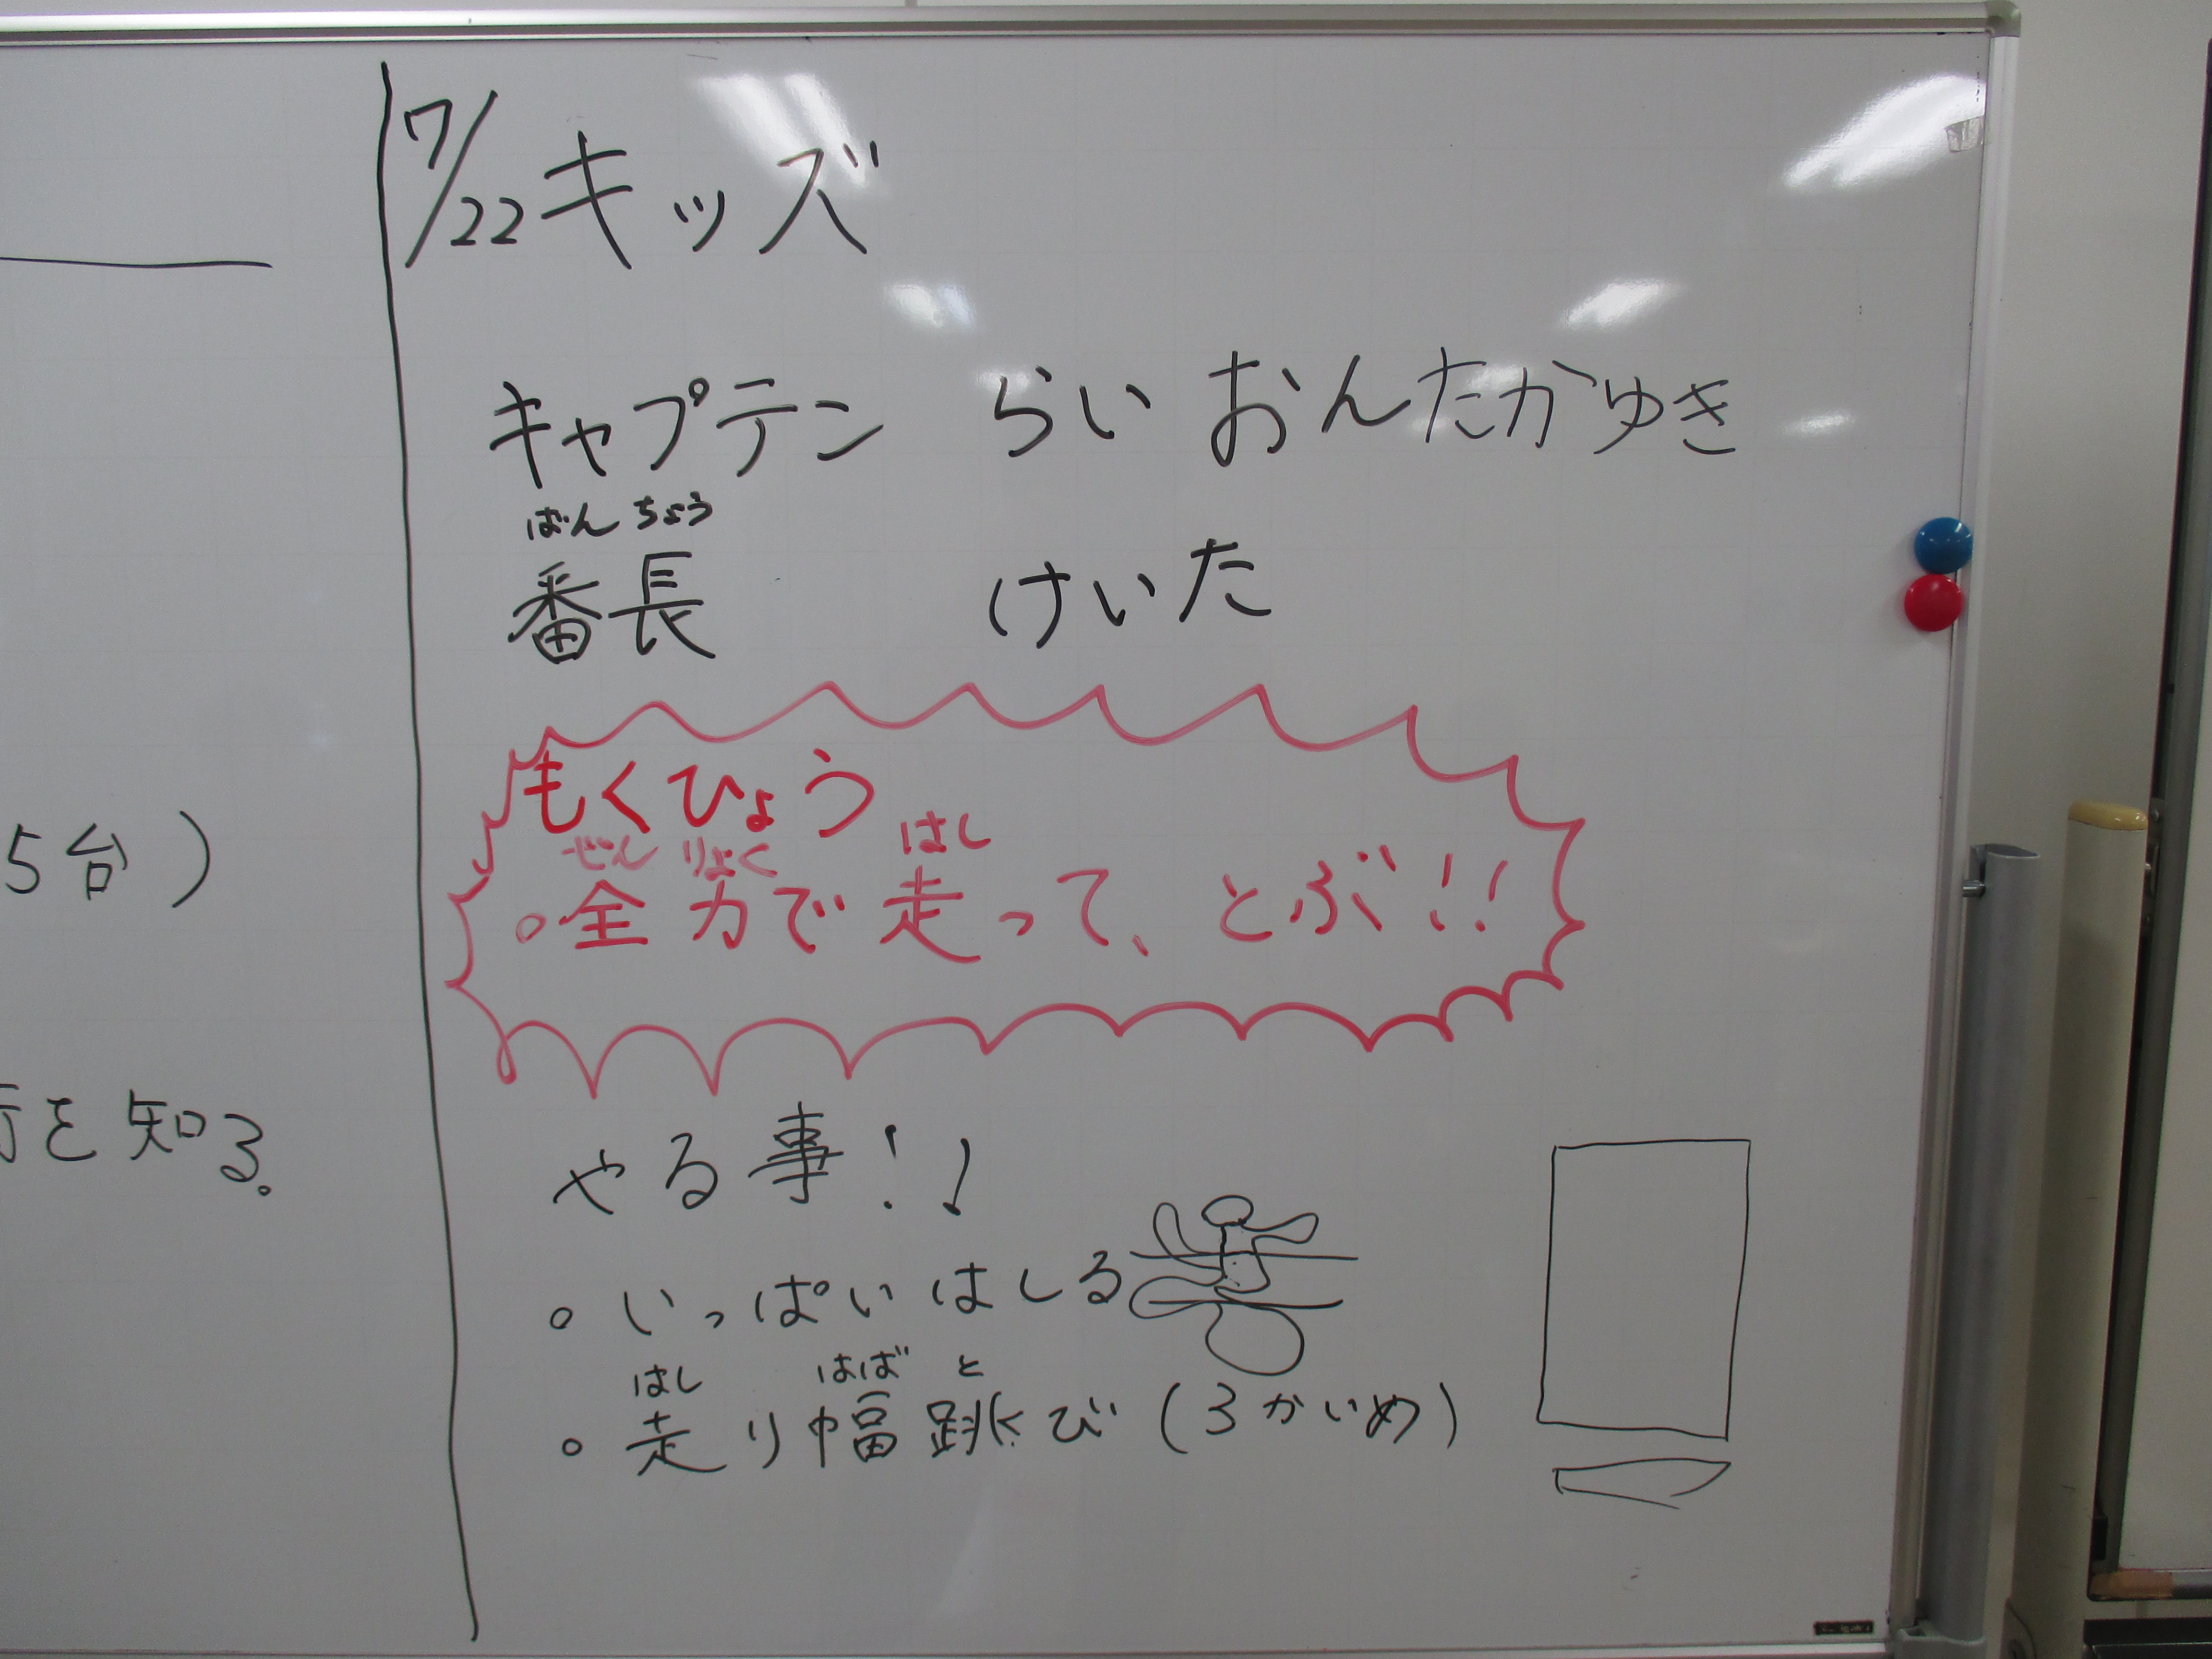 7/22 キッズ
キャプテン らい おんたかゆき
ばんちょう
番長 けいた
もくひょう
ぜんりょく はし
○全力で走って、とぶ!!
やる事!!
○いっぱいはしる
はし はば と
○走り幅跳び(3かいめ)
5台)
を知る。